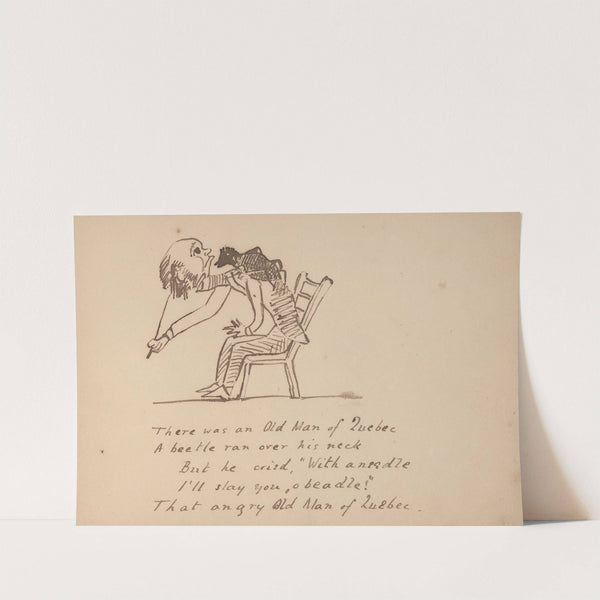 There was an Old Man of Quebec
A beetle ran over his neck
But he cried, "With a needle
I'll slay you, o beadle!"
That angry Old Man of Quebec.